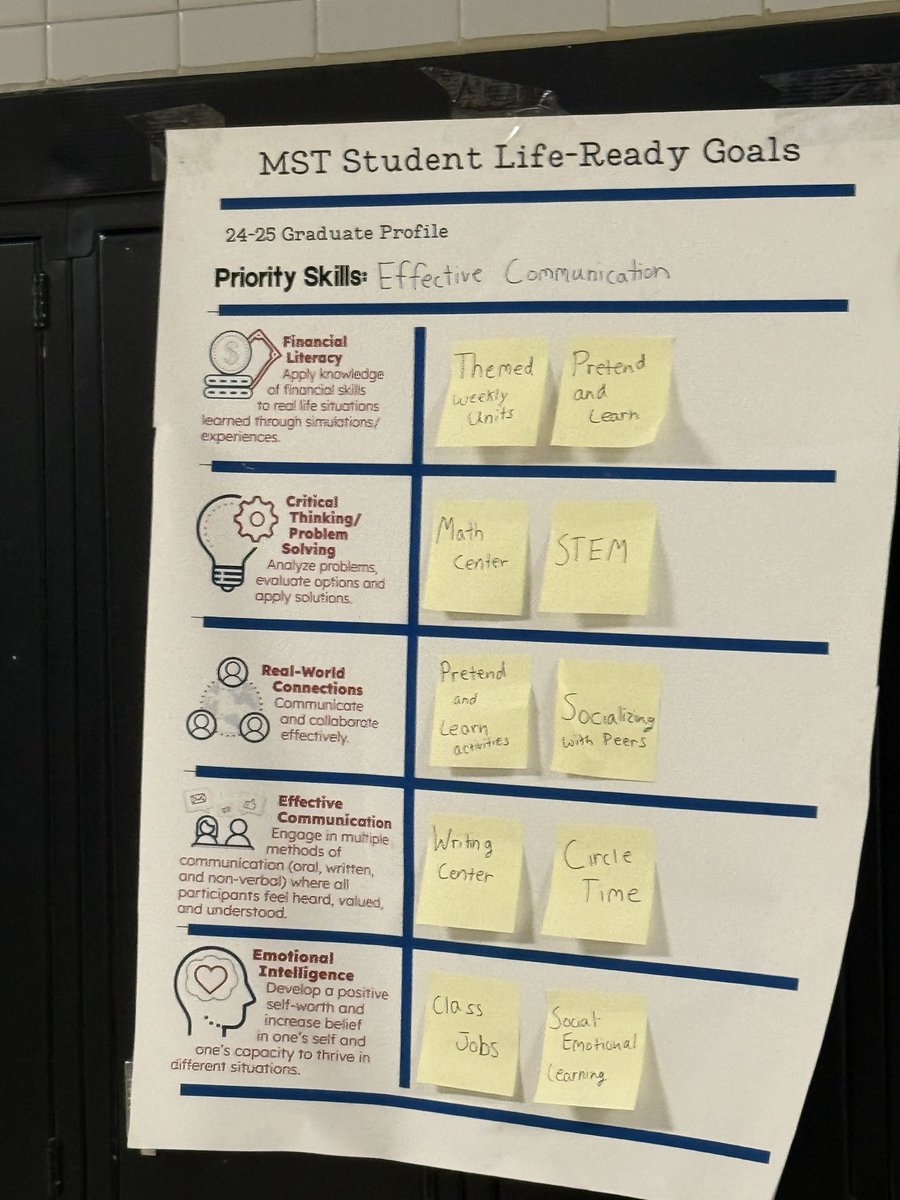 MST Student Life-Ready Goals
24-25 Graduate Profile
Priority Skills: Effective Communication
Financial
Literacy
Apply knowledge
of financial skills
to real life situations
learned through simulations/
experiences.
Themed
Weekly
Units
Pretend
and
Learn
Critical
Thinking/
Problem
Solving
Analyze problems,
evaluate options and
apply solutions.
Math
Center
STEM
Real-World
Connections
Communicate
and collaborate
effectively.
Pretend
and
Learn
activities
Socializing
with Peers
Effective
Communication
Engage in multiple
methods of
communication (oral, written,
and non-verbal) where all
participants feel heard, valued,
and understood.
Writing
Center
Circle
Time
Emotional
Intelligence
Develop a positive
self-worth and
increase belief
in one's self and
one's capacity to thrive in
different situations.
Class
Jobs
Social
Emotional
Learning